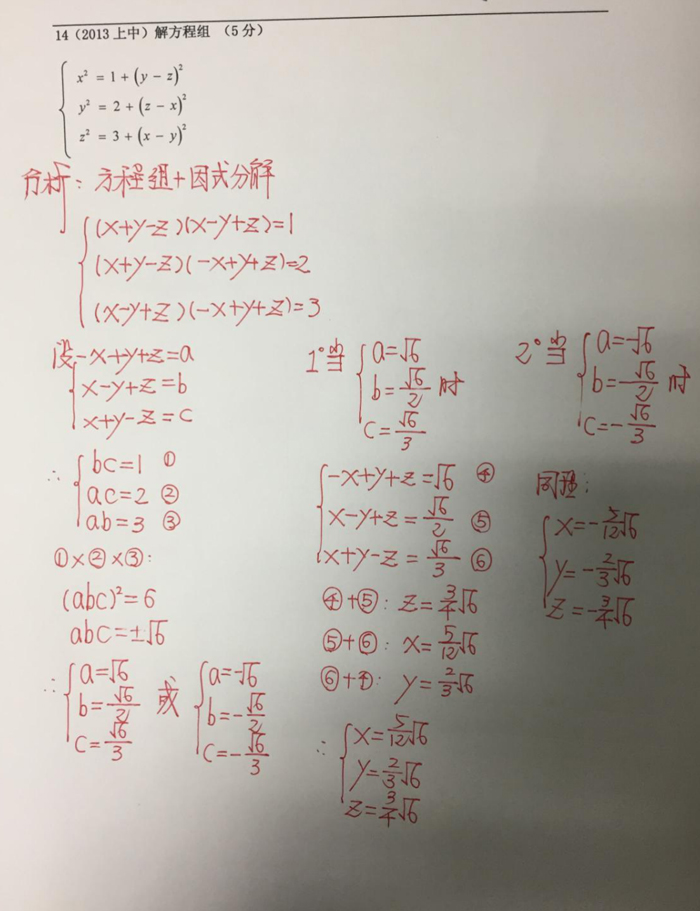 14（2013 上中）解方程组 （5 分）
x² = 1 + (y − z)²
y² = 2 + (z − x)²
z² = 3 + (x − y)²
分析：方程组+因式分解
(x+y−z)(x−y+z)=1
(x+y−z)(−x+y+z)=2
(x−y+z)(−x+y+z)=3
设−x+y+z=a
x−y+z=b
x+y−z=c
∴ bc=1 ①
ac=2 ②
ab=3 ③
①×②×③:
(abc)²=6
abc=±√6
∴ a=√6
b=√6/2
c=√6/3
或
a=−√6
b=−√6/2
c=−√6/3
1° 当 a=√6
b=√6/2 时
c=√6/3
−x+y+z=√6 ④
x−y+z=√6/2 ⑤
x+y−z=√6/3 ⑥
④+⑤: z=3/4√6
⑤+⑥: x=5/12√6
⑥+④: y=2/3√6
∴ x=5/12√6
y=2/3√6
z=3/4√6
2° 当 a=−√6
b=−√6/2 时
c=−√6/3
同理:
x=−5/12√6
y=−2/3√6
z=−3/4√6